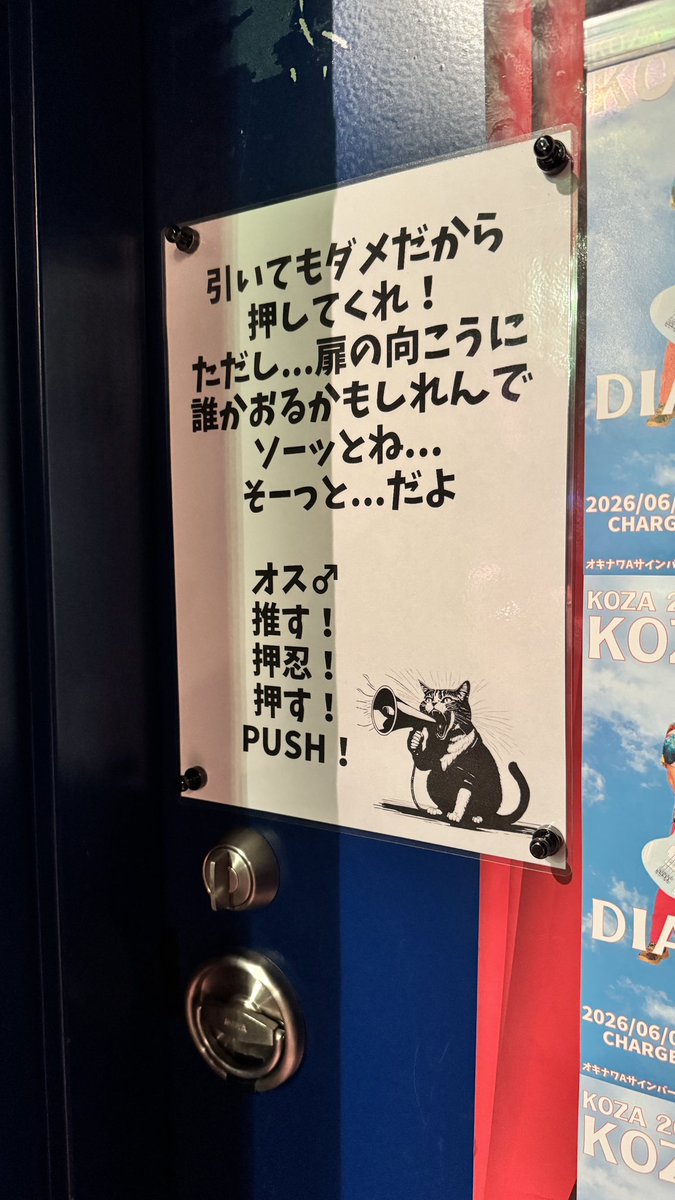 引いてもダメだから
押してくれ！
ただし...扉の向こうに
誰かおるかもしれんで
ソーッとね...
そーっと...だよ
オス♂
推す！
押忍！
押す！
PUSH！
KO
DIA
2026/06/
CHARGE
オキナワAサインバー
KOZA 20
KOZ
DIA
2026/06/0
CHARGE
オキナワAサインバー
KOZA 20
KOZ